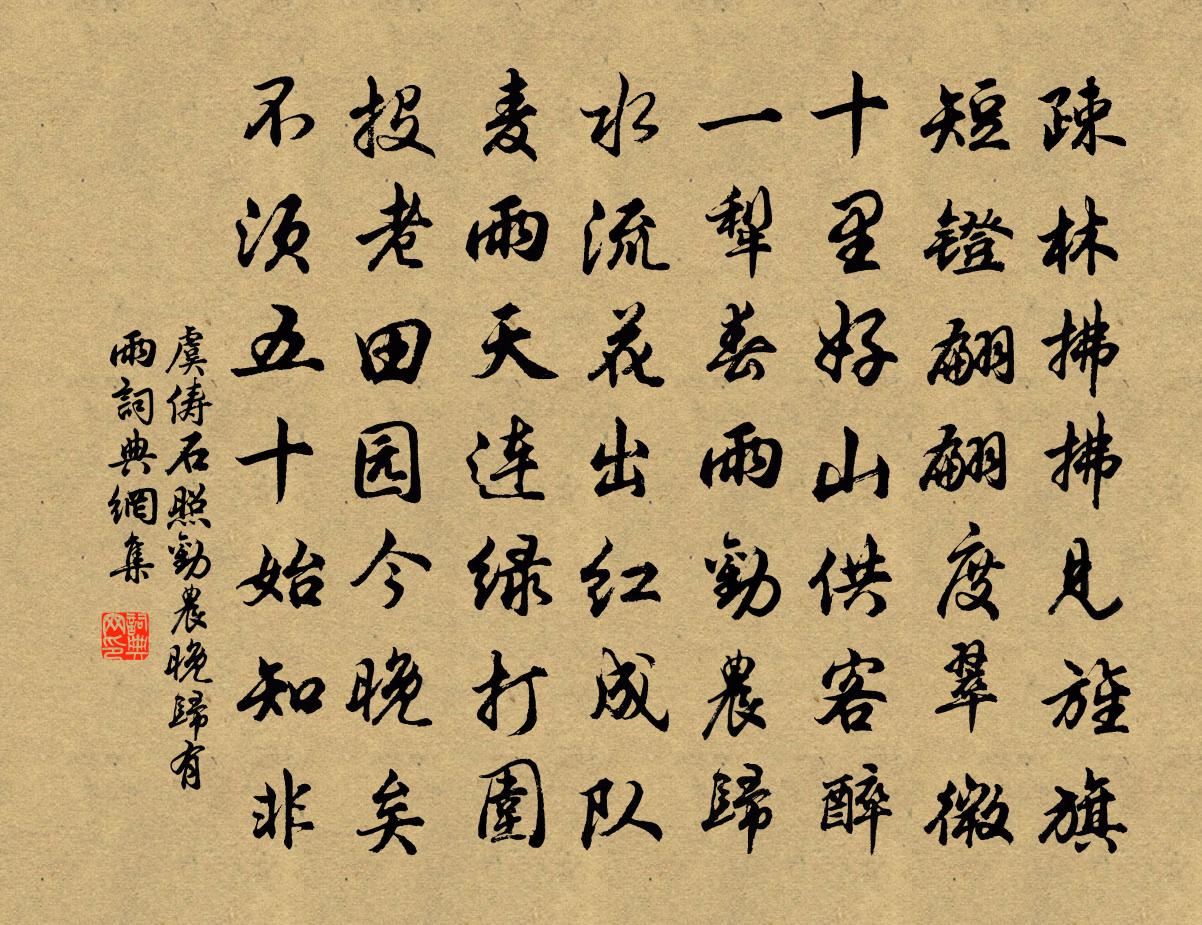 疎林拂拂見旌旗
短镫翩翩度翠微
十里好山供客醉
一犂春雨勸農歸
水流花出红成队
麦雨天连绿打圍
投老田园今晚矣
不须五十始知非
虞儔石照勸農晚歸有
雨詞典網集
詞典网印